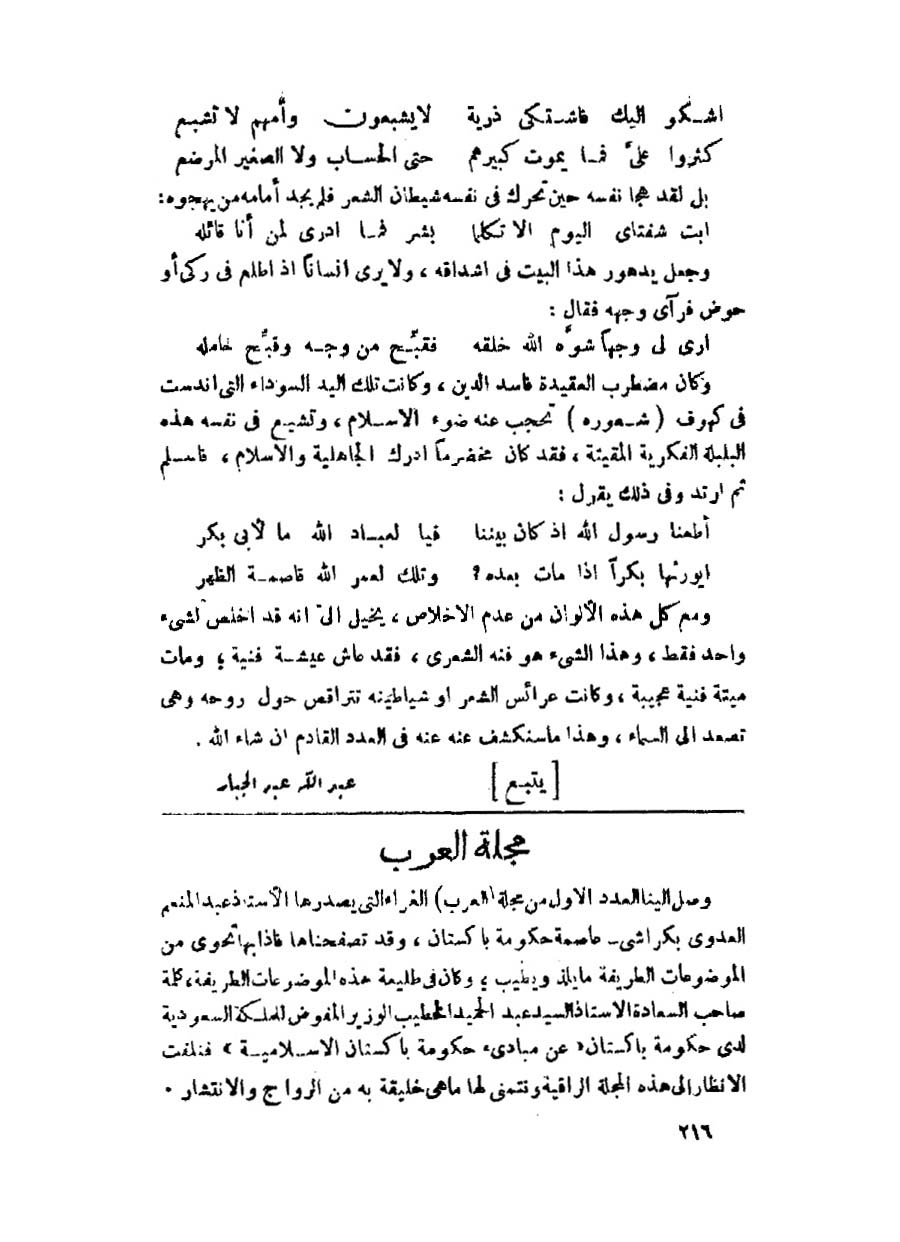 اشـكو اليك فاشـتكى ذرية لايشبعون وأمهم لا تشبع
كثروا علىّ فمـا يموت كبيرهم حتى الحسـاب ولا الصغير المرضع
بل لقد هجا نفسه حين تحرك فى نفسه شيطان الشعر فلم يجد أمامه من يهجوه :
ابت شفتاى اليوم الا تكلما بشر فمـا ادرى لمن أنا قائله
وجعل يدهور هذا البيت فى اشداقه ، ولايرى انساناً اذ اطلع فى ركى أو
حوض فرآى وجهه فقال :
ارى لى وجهاً شوَّه الله خلقه فقبِّـح من وجـه وقبِّح حامله
وكان مضطرب العقيدة فاسد الدين ، وكانت تلك اليد السوداء التى اندست
فى كهوف ( شـعوره ) تحجب عنه ضوء الاسـلام ، وتشيـع فى نفسه هذه
البلبلة الفكرية المقيتة ، فقد كان مخضرماً ادرك الجاهلية والاسلام ، فاسـلم
ثم ارتد وفى ذلك يقول :
أطعنا رسول الله اذ كان بيننا فيا لعبـاد الله ما لأبى بكر
ايورثها بكراً اذا مات بعده ؟ وتلك لعمر الله قاصمـة الظهر
ومع كل هذه الألوان من عدم الاخلاص ، يخيل الىّ انه قد اخلص لشىء
واحد فقط ، وهذا الشىء هو فنه الشعرى ، فقد عاش عيشـة فنية ؛ ومات
ميتة فنية عجيبة ، وكانت عرائس الشعر او شياطينه تتراقص حول روحه وهى
تصعد الى السماء ، وهذا ماسنكشف عنه عنه فى العدد القادم ان شاء الله .
[ يتبـع ] عبد الله عبد الجبار
مجلة العرب
وصل الينا العدد الاول من مجلة (العرب) الغراء التى يصدرها الأستاذ عبد المنعم
العدوى بكراشى ـ عاصمة حكومة باكستان ، وقد تصفحناها فاذا بها تحوى من
الموضوعات الطريفة مايلذ ويطيب ؛ وكان فى طليعة هذه الموضوعات الطريفة ، كلمة
صاحب السعادة الاستاذ السيد عبد الحميد الخطيب الوزير المفوض للملكة السعودية
لدى حكومة باكستان « عن مبادىء حكومة باكستان الاسـلاميـة » فنلفت
الانظار الى هذه المجلة الراقية ونتمنى لها ماهى خليقة به من الرواج والانتشار ٠
٢١٦